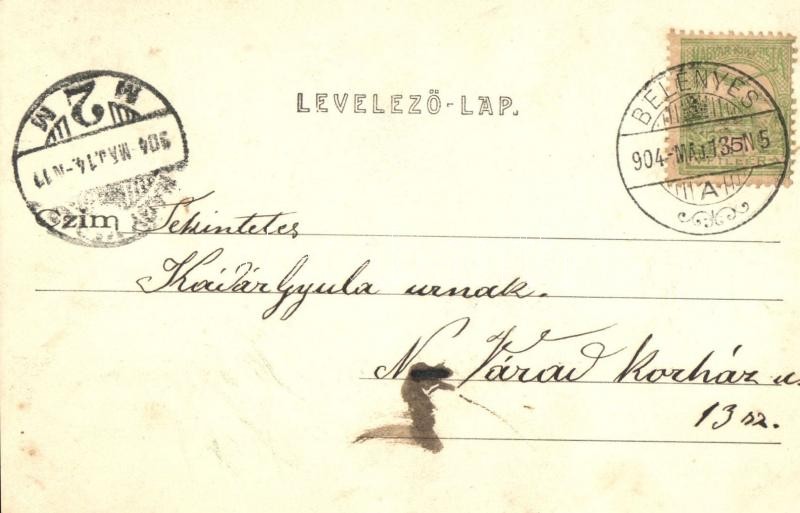 MAGYAR KIR. POSTA
LEVELEZŐ-LAP.
BELÉNYES
904-MÁJ.13 N5
A
5
M 2 M
904-MÁJ.14-N11
Czim
Tekintetes
Kádár Gyula urnak.
N-Várad Korház u.
13 sz.